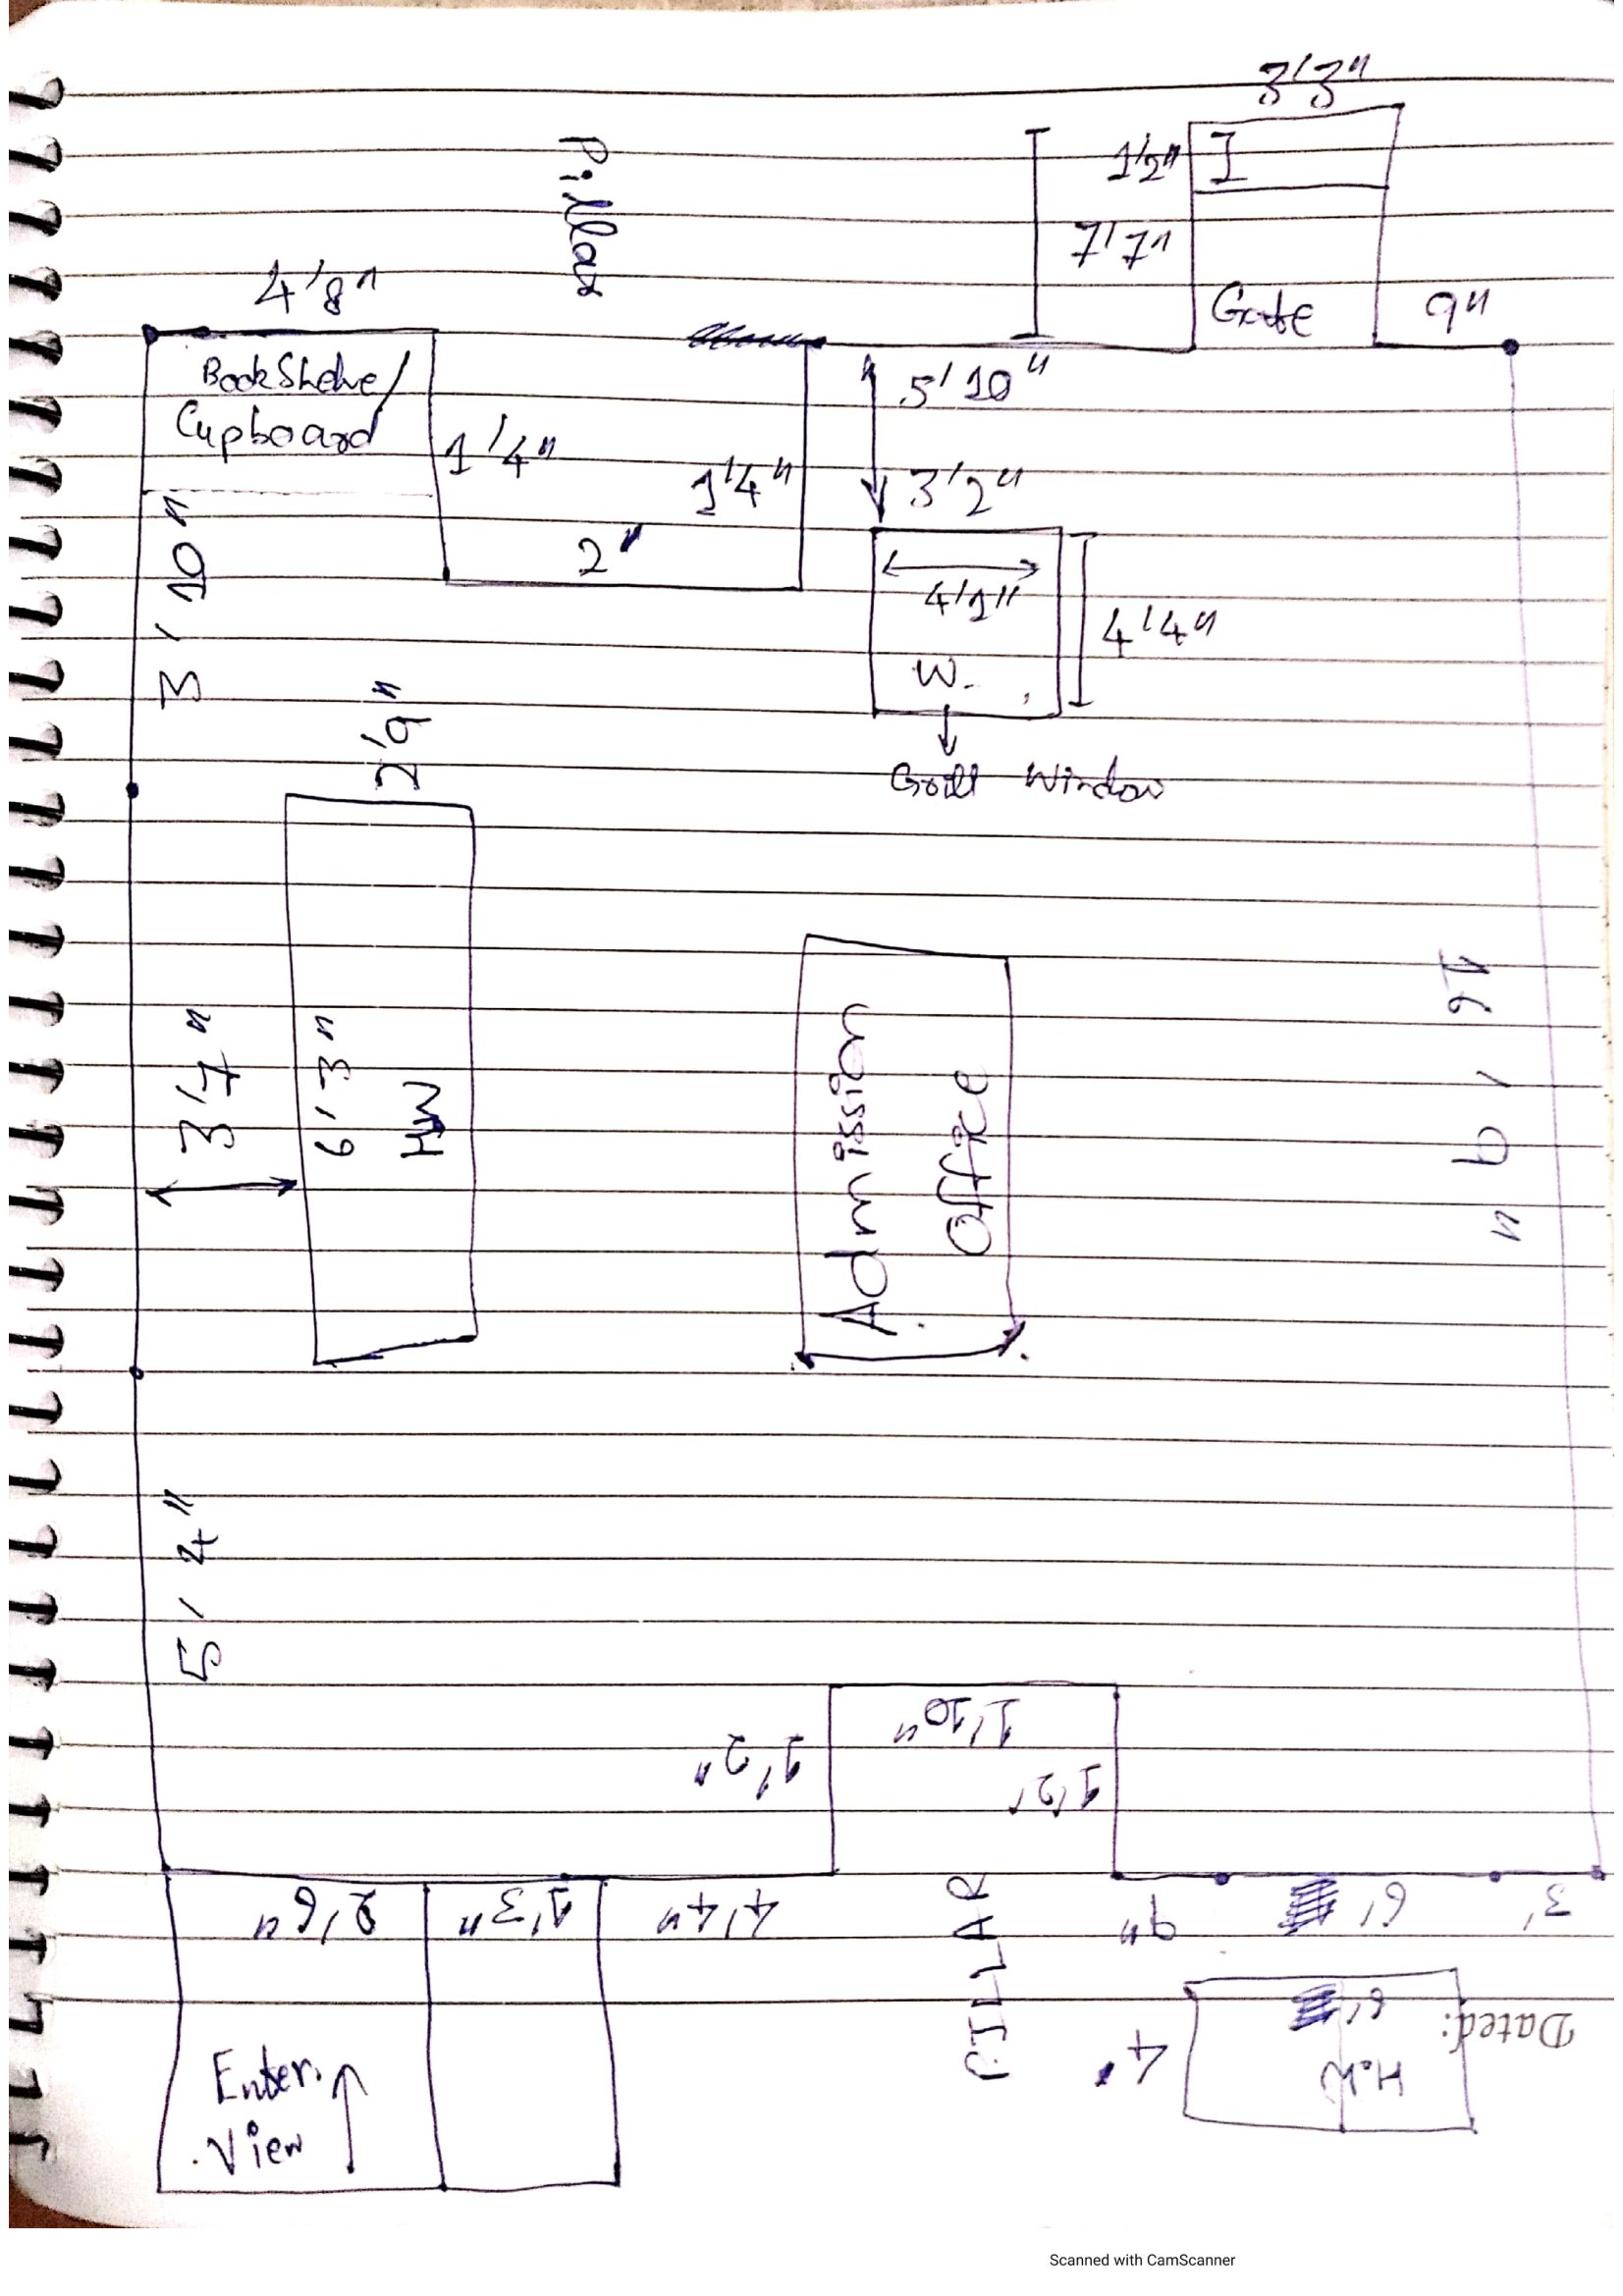 3'3"
1'2"
I
7'7"
Gate
9"
Pillar
4'8"
BookShelve/
Cupboard
1'4"
1'4"
2"
5'10"
3'2"
4'1"
4'4"
W.
Grill Window
3'10"
2'9"
3'7"
6'3"
HW
Admission
office
16'9"
5'4"
1'2"
1'10"
1'2'
2'6"
1'3"
4'4"
PILLAR
9"
6'
3'
Enter.
View
4'
6'
H.W
Dated:
Scanned with CamScanner